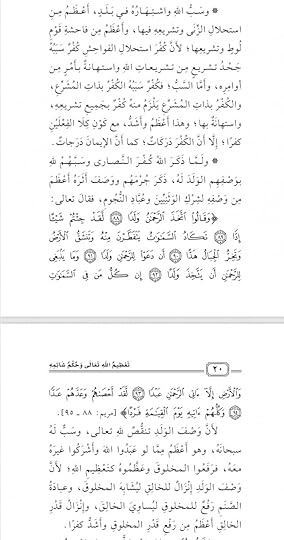 * وسَبُّ اللهِ واشتِهَارُهُ في بَلَدٍ، أَعْظَمُ مِنِ
استحلالِ الزِّنَى وتشريعِهِ فيها، وأَعْظَمُ مِن فاحشةِ قَوْمِ
لُوطٍ وتشريعِها؛ لأنَّ كُفْرَ استحلالِ الفواحشِ كُفْرٌ سَبَبُهُ
جَحْدُ تشريعٍ مِن تشريعاتِ اللهِ واستهانةٌ بأَمْرٍ مِن
أوامِرِه، وأمَّا السَّبُّ؛ فكُفْرٌ سَبَبُهُ الكُفْرُ بذاتِ المُشَرِّعِ،
والكُفْرُ بذاتِ المُشَرِّعِ يَلْزَمُ منهُ كُفْرٌ بجَمِيعِ تشريعِهِ،
واستهانةٌ بها؛ وهذا أَعْظَمُ وأَشَدُّ، مع كَوْنِ كِلَا الفِعْلَيْنِ
كفرًا؛ إلَّا أنَّ الكُفْرَ دَرَكَاتٌ؛ كما أنَّ الإيمانَ دَرَجاتٌ.
* ولَمَّا ذَكَرَ اللهُ كُفْرَ النَّصارى وسَبَّهُمْ للهِ
بِوَصْفِهِم الوَلَدَ لَهُ، ذَكَرَ جُرْمَهُم ووَصَفَ أَثَرَهُ أَعْظَمَ
مِن وَصْفِهِ لشِرْكِ الوَثَنِيِّينَ وعُبَّادِ النُّجُومِ، فقالَ تعالى:
﴿وَقَالُوا اتَّخَذَ الرَّحْمَنُ وَلَدًا ﴿٨٨﴾ لَّقَدْ جِئْتُمْ شَيْئًا
إِدًّا ﴿٨٩﴾ تَكَادُ السَّمَوَاتُ يَتَفَطَّرْنَ مِنْهُ وَتَنشَقُّ الْأَرْضُ
وَتَخِرُّ الْجِبَالُ هَدًّا ﴿٩٠﴾ أَن دَعَوْا لِلرَّحْمَنِ وَلَدًا ﴿٩١﴾ وَمَا يَنْبَغِي
لِلرَّحْمَنِ أَن يَتَّخِذَ وَلَدًا ﴿٩٢﴾ إِن كُلُّ مَن فِي السَّمَوَاتِ
٢٠ تَعْظِيمُ اللهِ تَعَالَى وَحُكْمُ شَاتِمِهِ
وَالْأَرْضِ إِلَّا ءَاتِي الرَّحْمَنِ عَبْدًا ﴿٩٣﴾ لَّقَدْ أَحْصَاهُمْ وَعَدَّهُمْ عَدًّا
﴿٩٤﴾ وَكُلُّهُمْ ءَاتِيهِ يَوْمَ الْقِيَامَةِ فَرْدًا﴾ [مريم: ٨٨ ـ ٩٥].
لأنَّ وَصْفَ الوَلَدِ تنقُّصٌ للهِ تعالى، وسَبٌّ لَهُ
سبحانَهُ، وهو أَعْظَمُ مِمَّا لو عَبَدُوا اللهَ وأَشْرَكُوا غيرَهُ
معَهُ، فرَفَعُوا المخلوقَ وعَظَّمُوهُ كتَعْظِيمِ اللهِ؛ لأنَّ
وَصْفَ الوَلَدِ إنْزَالٌ للخالِقِ ليُشابِهَ المخلوقَ، وعبادةُ
الصَّنَمِ رَفْعٌ للمخلوقِ ليُساوِيَ الخالِقَ، وإنْزَالُ قَدْرِ
الخالقِ أَعْظَمُ مِن رَفْعِ قَدْرِ المخلوقِ وأَشَدُّ كفرًا.